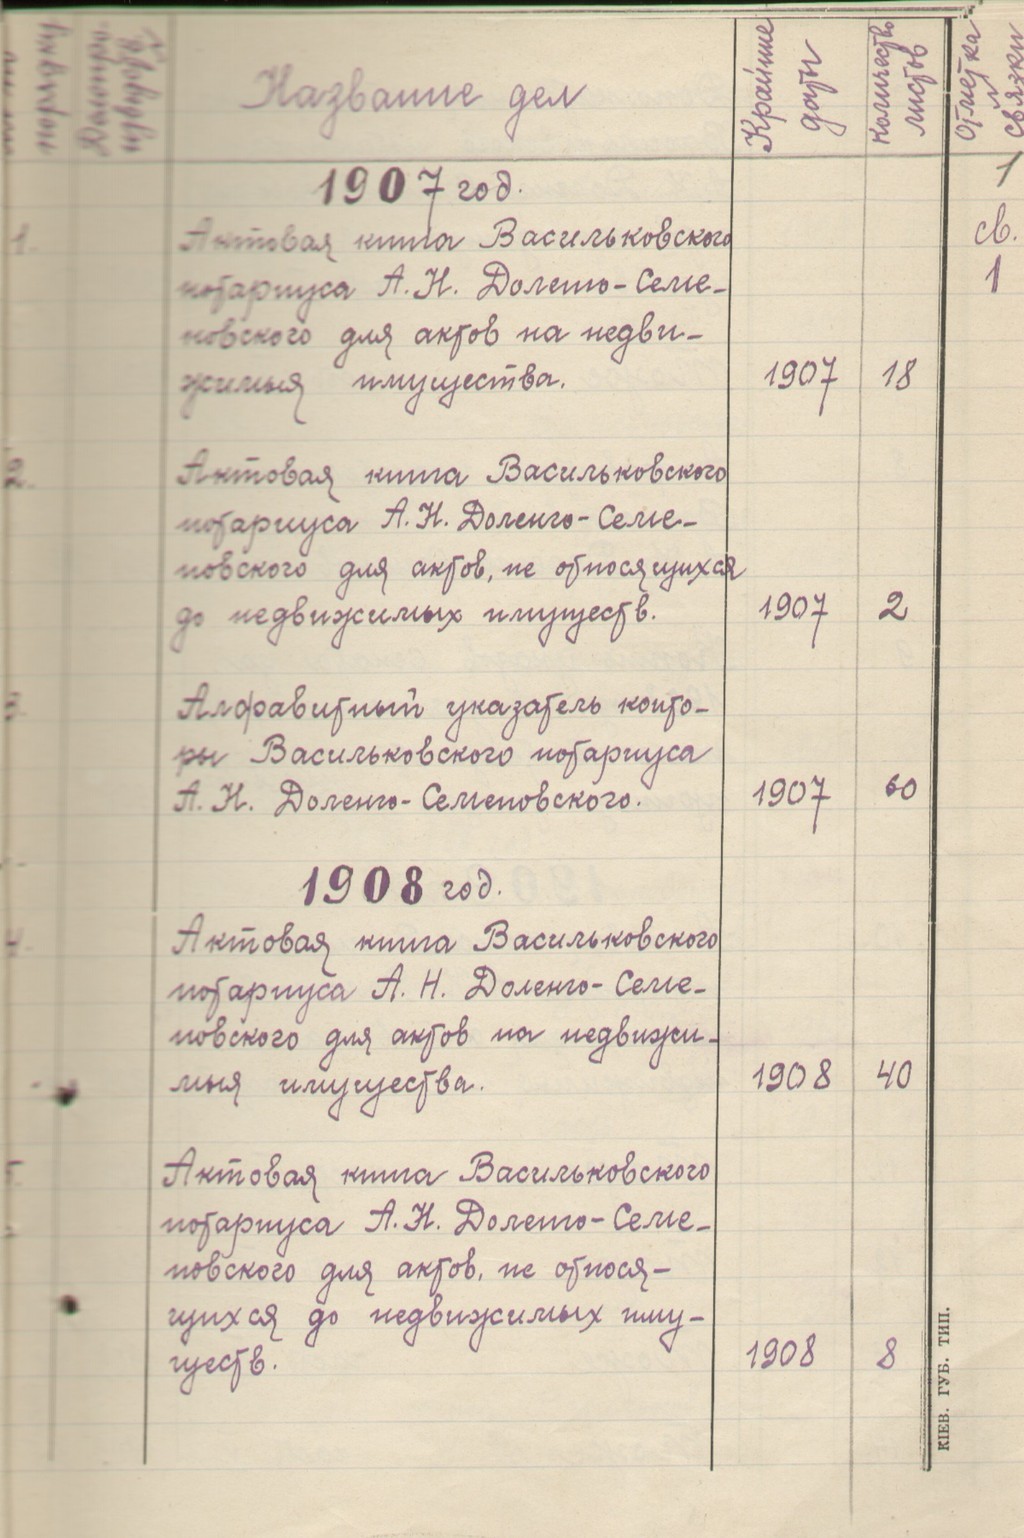 порядку
Делопро.
Название дел
Крайние даты
Количество листов
Отметка
связки
1907 год.
1
св.
1
1. Актовая книга Васильковского
нотариуса А.Н. Доленго-Семе-
новского для актов на недви-
жимыя имущества. 1907 18
2. Актовая книга Васильковского
нотариуса А.Н. Доленго-Семе-
новского для актов, не относящихся
до недвижимых имуществ. 1907 2
3. Алфавитный указатель конто-
ры Васильковского нотариуса
А.Н. Доленго-Семеновского. 1907 60
1908 год.
4. Актовая книга Васильковского
нотариуса А.Н. Доленго-Семе-
новского для актов на недвижи-
мыя имущества. 1908 40
5. Актовая книга Васильковского
нотариуса А.Н. Доленго-Семе-
новского для актов, не относя-
щихся до недвижимых иму-
ществ. 1908 8
КІЕВ. ГУБ. ТИП.